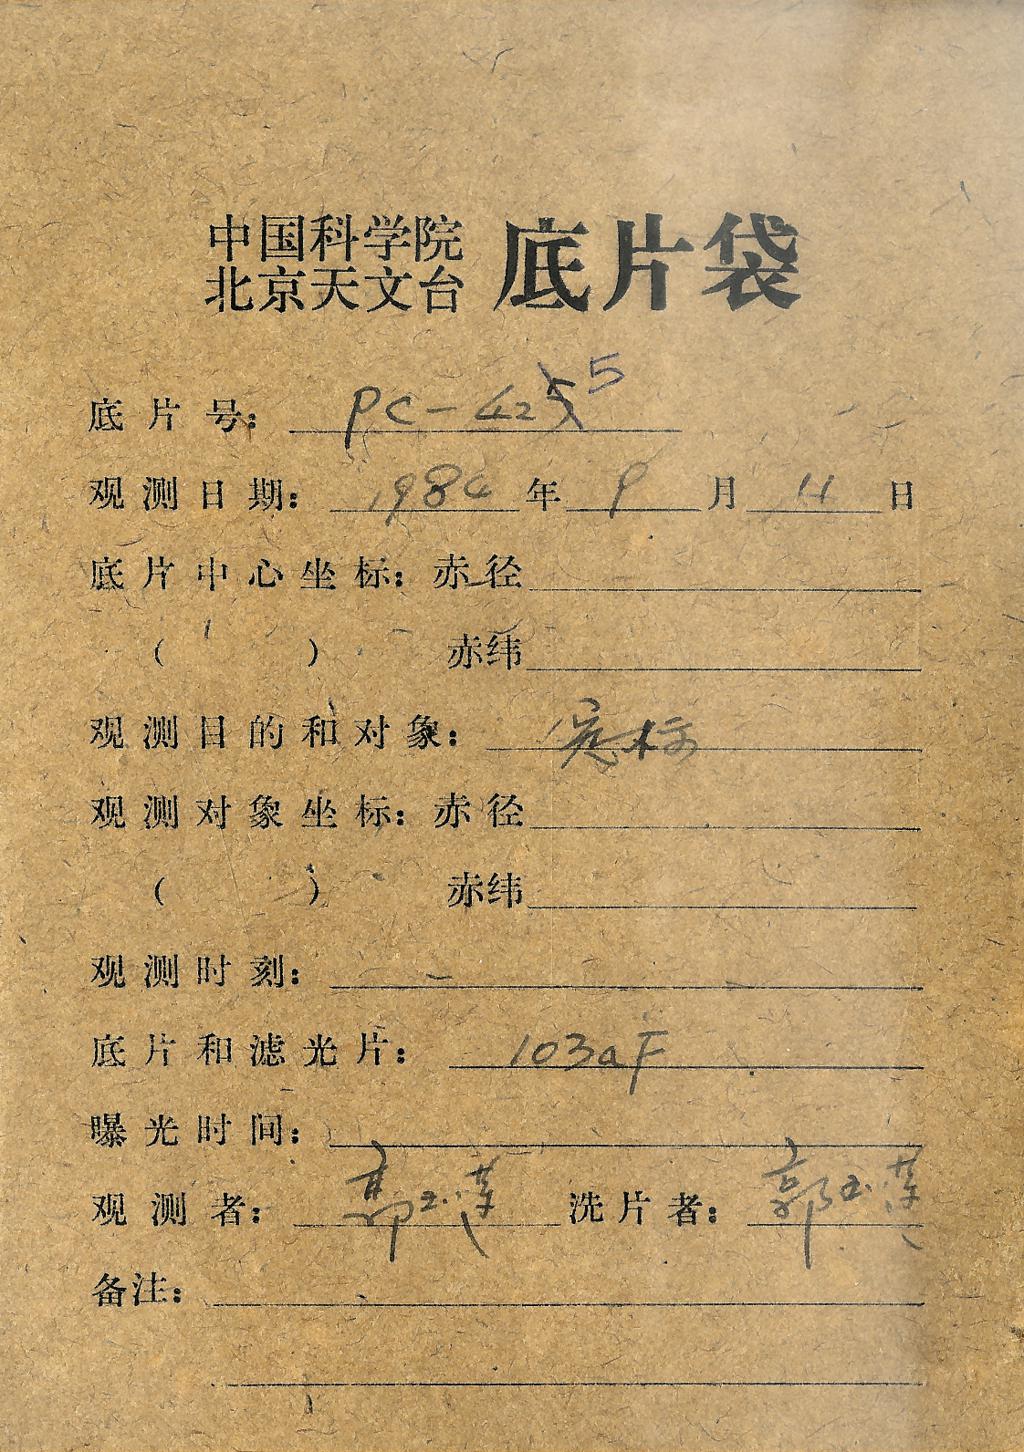 中国科学院
北京天文台 底片袋
底片号: PC-425 5
观测日期: 1984 年 9 月 11 日
底片中心坐标: 赤径
( ) 赤纬
观测目的和对象: 定标
观测对象坐标: 赤径
( ) 赤纬
观测时刻:
底片和滤光片: 103aF
曝光时间:
观测者: 郭玉莲 洗片者: 郭玉莲
备注: